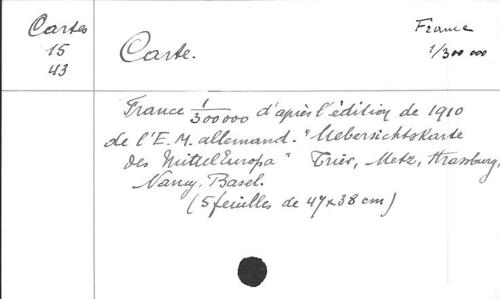 Cartes
15
43
Carte.
France
1/300 000
France 1/300000 d'après l'édition de 1910
de l'E. M. allemand. "Uebersichtskarte
des Mittel Europa" Trier, Metz, Strassburg,
Nancy, Basel.
(5 feuilles de 47x38 cm)